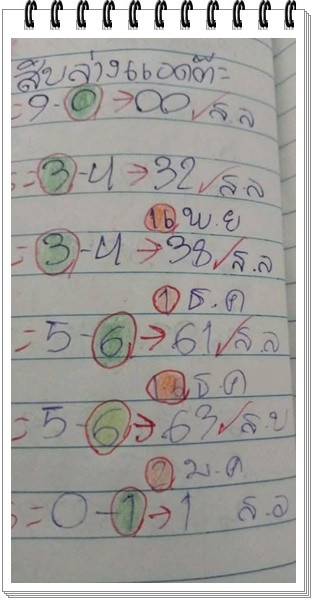 สิบล่างแอดติ=
=9-0→00✓ส.ล
=3-4→32✓ส.ล
16 พ.ย
=3-4→38✓ส.ล
1 ธ.ค
=5-6→61✓ส.ล
16 ธ.ค
=5-6→63✓ส.บ
2 ม.ค
=0-1→1 ส.ล